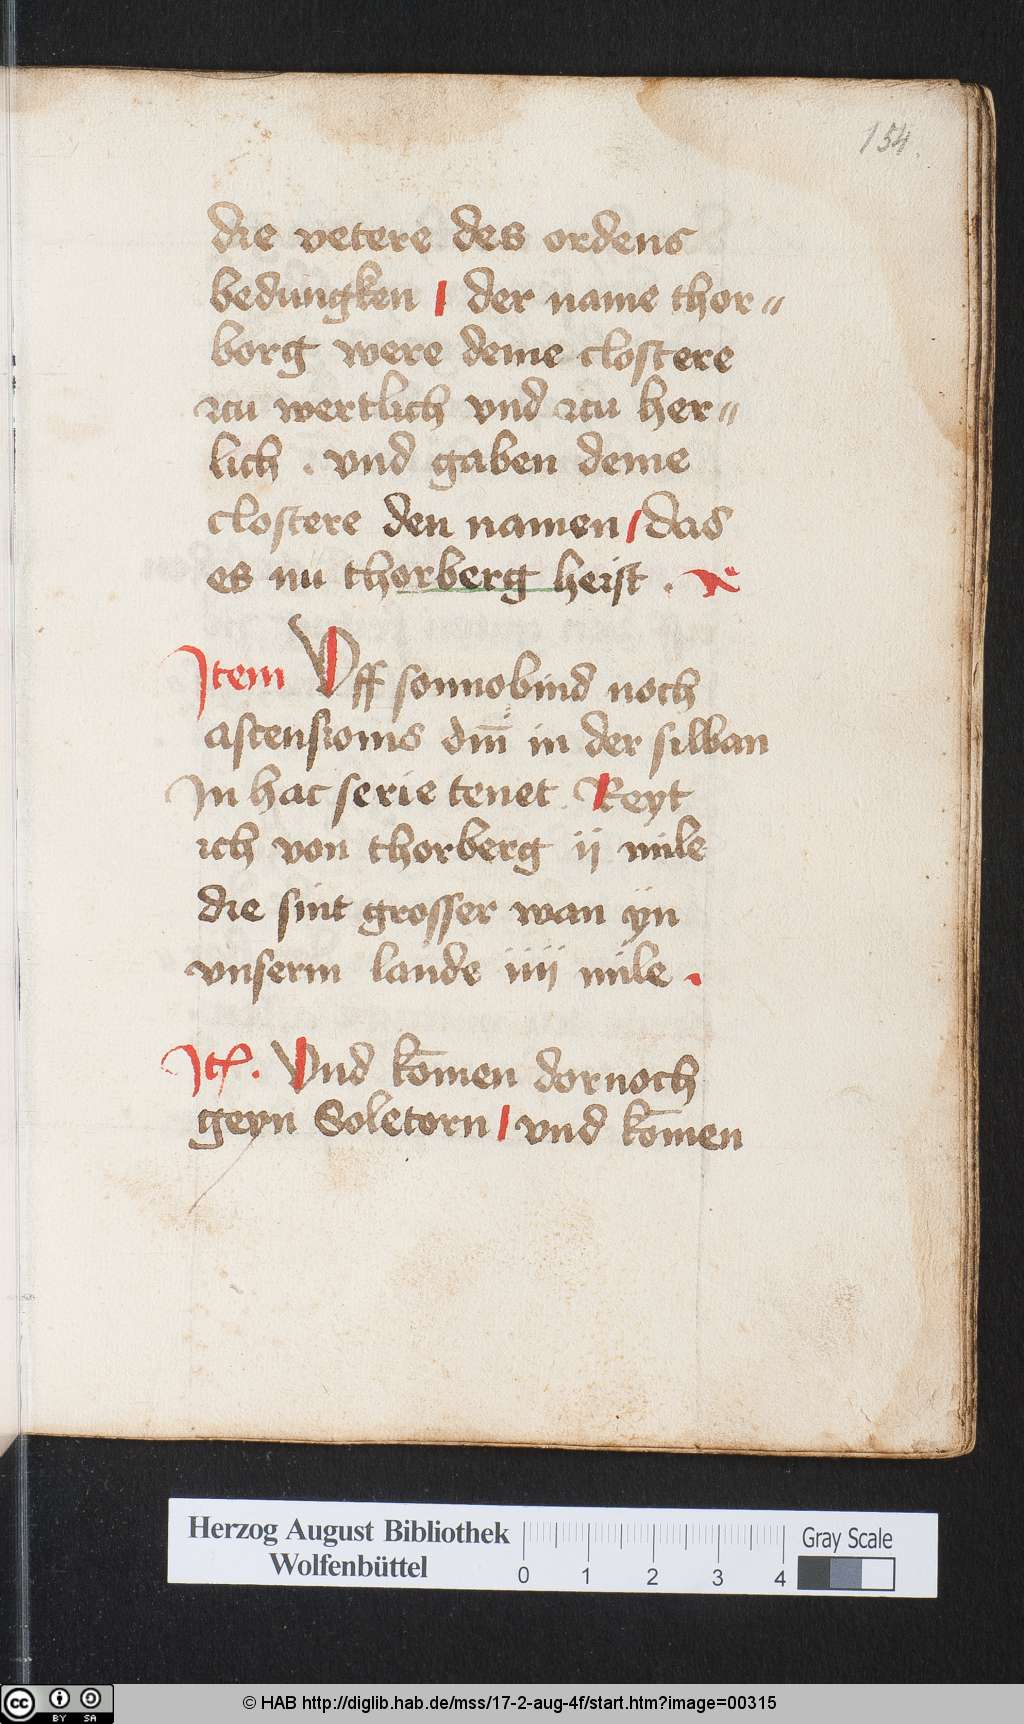 154.
die vetere des ordens
bedungken / der name thor〃
borg were deme clostere
zcu wertlich vnd zcu her〃
lich . vnd gaben deme
clostere den namen / das
es nu thorberg heist .
Item Vff sonnobind noch
ascensionis dm̄ in der silban
In hac serie tenet Reyt
ich von thorberg ii mile
die sint grosser wan yn
vnserm lande iiii mile .
It . Vnd kōmen dornoch
geyn Soletorn / vnd kōmen
Herzog August Bibliothek
Wolfenbüttel
0 1 2 3 4
Gray Scale
cc BY SA
© HAB http://diglib.hab.de/mss/17-2-aug-4f/start.htm?image=00315